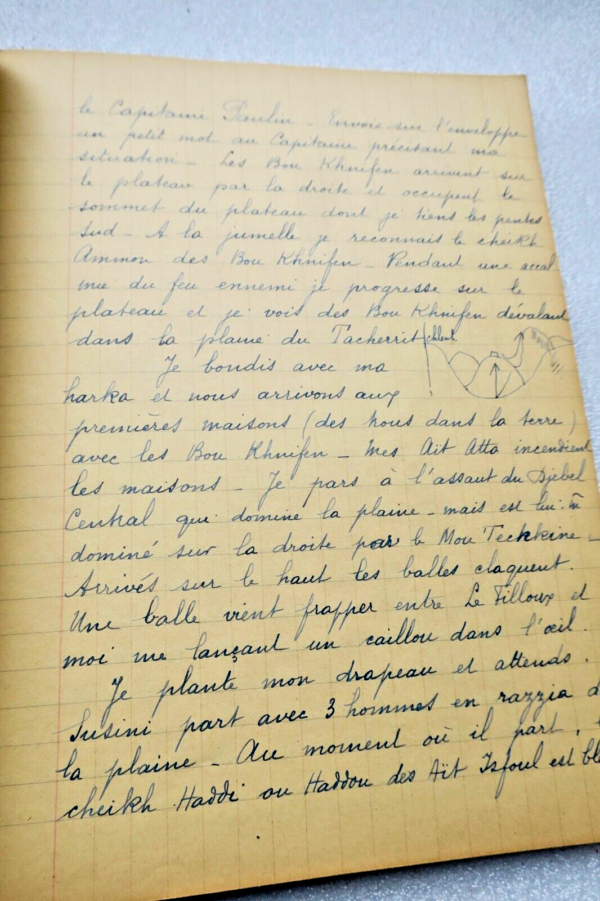 le Capitaine - Envoie sur l'enveloppe
un petit mot au Capitaine précisant ma
situation - Les Bou Khnifen arrivent sur
le plateau par la droite et occupent le
sommet du plateau dont je tiens les pentes
Sud - A la jumelle je reconnais le cheikh
Ammou des Bou Khnifen - Pendant une accal
mie du feu ennemi je progresse sur le
plateau et je vois des Bou Khnifen dévalant
dans la plaine du Tacherrit
Je bondis avec ma
harka et nous arrivons aux
premières maisons (des trous dans la terre)
avec les Bou Khnifen - Mes Aït Atta incendient
les maisons - Je pars à l'assaut du Djebel
Central qui domine la plaine - mais est lui-m
dominé sur la droite par le Mou Teckkine -
Arrivés sur le haut les balles claquent.
Une balle vient frapper entre Le Filloux et
moi me lançant un caillou dans l'œil.
Je plante mon drapeau et attends.
Susini part avec 3 hommes en razzia d
la plaine - Au moment où il part,
cheikh Haddi ou Haddou des Aït Isfoul est ble